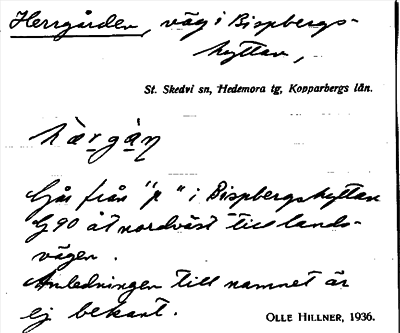 Herrgården, väg i Bispbergs-
hyttan,
St. Skedvi sn, Hedemora tg, Kopparbergs län.
hærgån
Går från "p" i Bispbergshyttan
G 90 åt nordväst till lands-
vägen.
Anledningen till namnet är
ej bekant.
OLLE HILLNER, 1936.